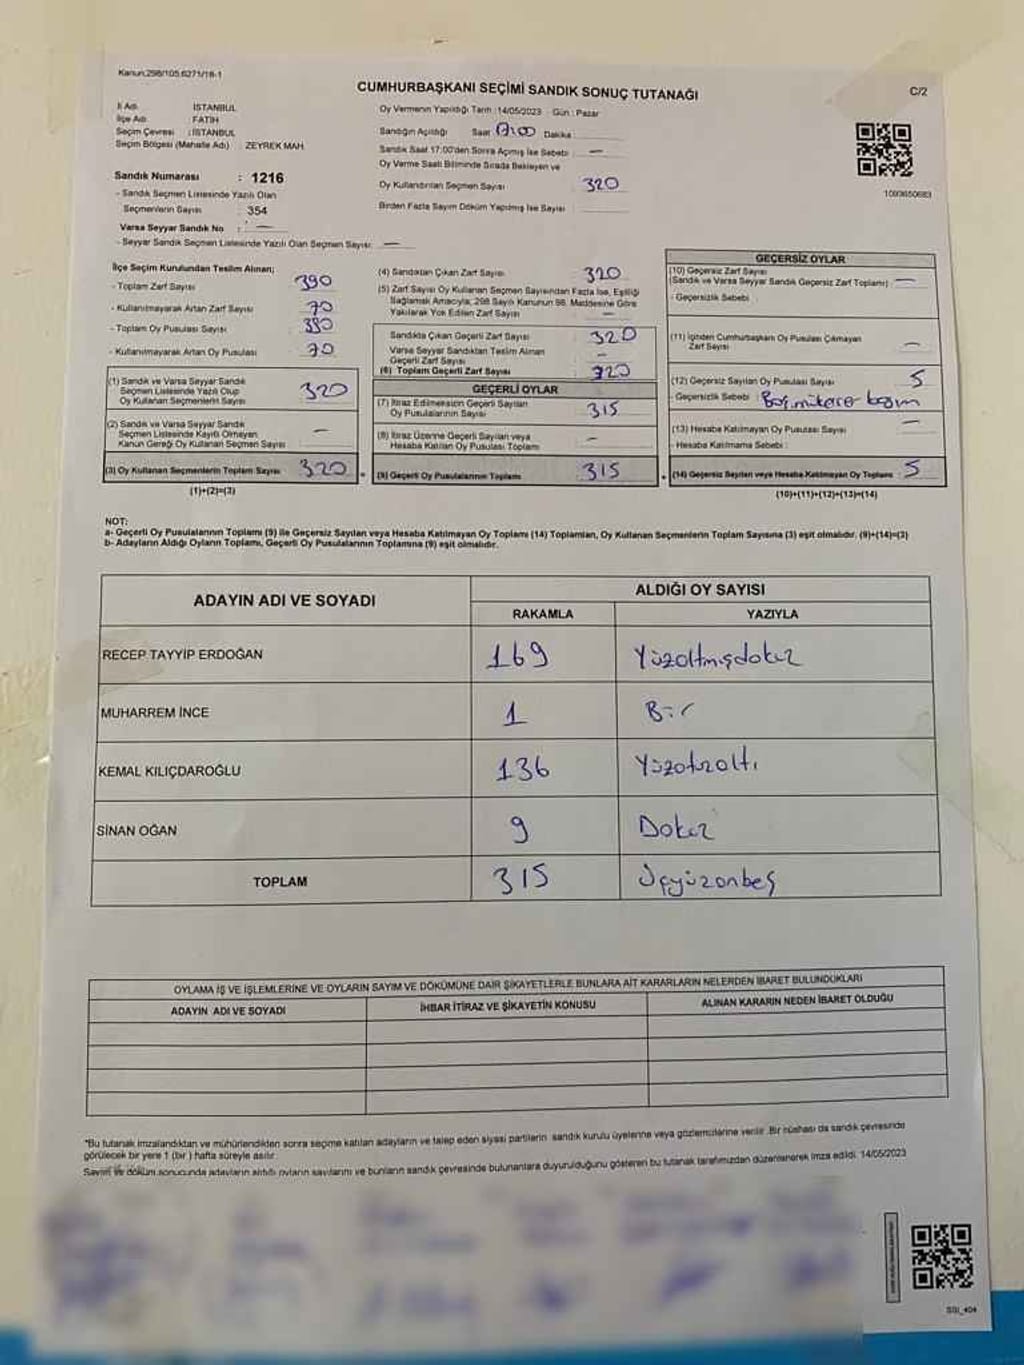 Kanun:298/105,6271/18-1
CUMHURBAŞKANI SEÇİMİ SANDIK SONUÇ TUTANAĞI
C/2
İl Adı : İSTANBUL
İlçe Adı : FATİH
Seçim Çevresi : İSTANBUL
Seçim Bölgesi (Mahalle Adı) : ZEYREK MAH.
Oy Vermenin Yapıldığı Tarih :14/05/2023 Gün : Pazar
Sandığın Açıldığı Saat 17:00 Dakika
Sandık Saat 17:00'den Sonra Açılmış İse Sebebi : —
Oy Verme Saati Bitiminde Sırada Bekleyen ve
Oy Kullandırılan Seçmen Sayısı 320
Birden Fazla Sayım Döküm Yapılmış İse Sayısı :
1093650683
Sandık Numarası : 1216
- Sandık Seçmen Listesinde Yazılı Olan
Seçmenlerin Sayısı : 354
Varsa Seyyar Sandık No : —
- Seyyar Sandık Seçmen Listesinde Yazılı Olan Seçmen Sayısı: —
İlçe Seçim Kurulundan Teslim Alınan;
- Toplam Zarf Sayısı 390
- Kullanılmayarak Artan Zarf Sayısı 70
- Toplam Oy Pusulası Sayısı 390
- Kullanılmayarak Artan Oy Pusulası 70
(1) Sandık ve Varsa Seyyar Sandık
Seçmen Listesinde Yazılı Olup
Oy Kullanan Seçmenlerin Sayısı 320
(2) Sandık ve Varsa Seyyar Sandık
Seçmen Listesinde Kayıtlı Olmayan
Kanun Gereği Oy Kullanan Seçmen Sayısı —
(3) Oy Kullanan Seçmenlerin Toplam Sayısı 320
(1)+(2)=(3)
(4) Sandıktan Çıkan Zarf Sayısı 320
(5) Zarf Sayısı Oy Kullanan Seçmen Sayısından Fazla İse, Eşitliği
Sağlamak Amacıyla, 298 Sayılı Kanunun 98. Maddesine Göre
Yakılarak Yok Edilen Zarf Sayısı —
Sandıkta Çıkan Geçerli Zarf Sayısı 320
Varsa Seyyar Sandıktan Teslim Alınan
Geçerli Zarf Sayısı —
(6) Toplam Geçerli Zarf Sayısı 320
GEÇERLİ OYLAR
(7) İtiraz Edilmeksizin Geçerli Sayılan
Oy Pusulalarının Sayısı 315
(8) İtiraz Üzerine Geçerli Sayılan veya
Hesaba Katılan Oy Pusulası Toplamı —
(9) Geçerli Oy Pusulalarının Toplamı 315
GEÇERSİZ OYLAR
(10) Geçersiz Zarf Sayısı
(Sandık ve Varsa Seyyar Sandık Geçersiz Zarf Toplamı) : —
- Geçersizlik Sebebi :
(11) İçinden Cumhurbaşkanı Oy Pusulası Çıkmayan
Zarf Sayısı —
(12) Geçersiz Sayılan Oy Pusulası Sayısı 5
- Geçersizlik Sebebi : Boş, mükerrer basım
(13) Hesaba Katılmayan Oy Pusulası Sayısı —
- Hesaba Katılmama Sebebi :
(14) Geçersiz Sayılan veya Hesaba Katılmayan Oy Toplamı 5
(10)+(11)+(12)+(13)=(14)
NOT:
a- Geçerli Oy Pusulalarının Toplamı (9) ile Geçersiz Sayılan veya Hesaba Katılmayan Oy Toplamı (14) Toplamları, Oy Kullanan Seçmenlerin Toplam Sayısına (3) eşit olmalıdır. (9)+(14)=(3)
b- Adayların Aldığı Oyların Toplamı, Geçerli Oy Pusulalarının Toplamına (9) eşit olmalıdır.
ADAYIN ADI VE SOYADI
ALDIĞI OY SAYISI
RAKAMLA YAZIYLA
RECEP TAYYİP ERDOĞAN 169 Yüzaltmışdokuz
MUHARREM İNCE 1 Bir
KEMAL KILIÇDAROĞLU 136 Yüzotuzaltı
SİNAN OĞAN 9 Dokuz
TOPLAM 315 Üçyüzonbeş
OYLAMA İŞ VE İŞLEMLERİNE VE OYLARIN SAYIM VE DÖKÜMÜNE DAİR ŞİKAYETLERLE BUNLARA AİT KARARLARIN NELERDEN İBARET BULUNDUKLARI
ADAYIN ADI VE SOYADI İHBAR İTİRAZ VE ŞİKAYETİN KONUSU ALINAN KARARIN NEDEN İBARET OLDUĞU
*Bu tutanak imzalandıktan ve mühürlendikten sonra seçime katılan adayların ve talep eden siyasi partilerin sandık kurulu üyelerine veya gözlemcilerine verilir. Bir nüshası da sandık çevresinde
görülecek bir yere 1 (bir) hafta süreyle asılır.
Sayım ve döküm sonucunda adayların aldığı oyların sayılarını ve bunların sandık çevresinde bulunanlara duyurulduğunu gösteren bu tutanak tarafımızdan düzenlenerek imza edildi. 14/05/2023
SSI_404